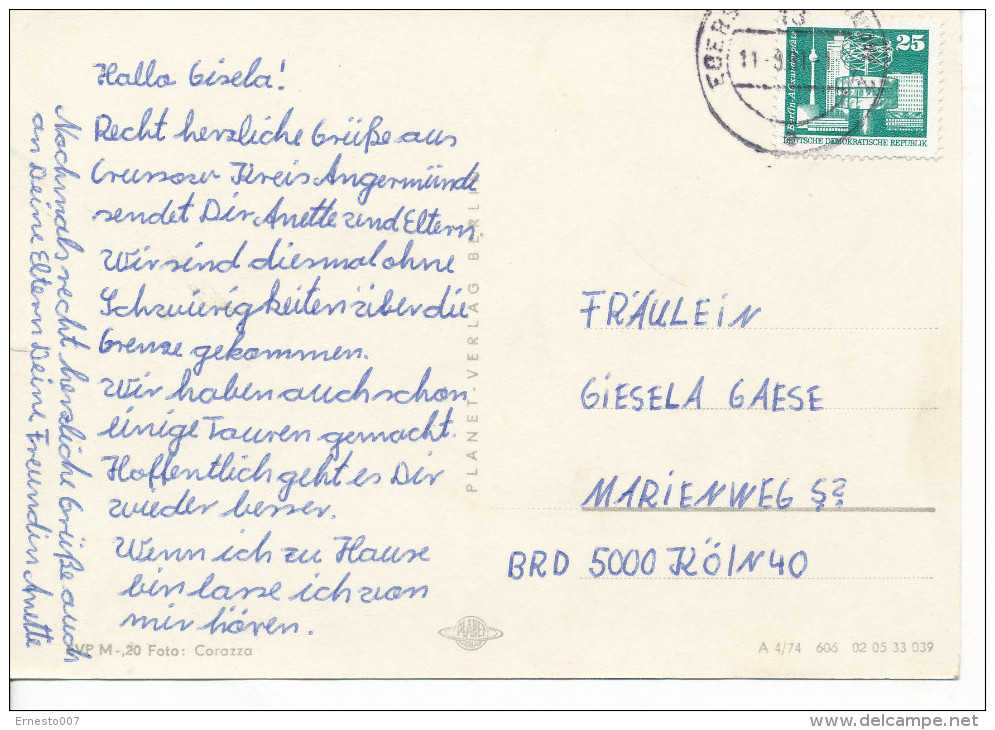 Hallo Gisela!
Recht herzliche Grüße aus
Crussow Kreis Angermünde
sendet Dir Anette und Eltern.
Wir sind diesmal ohne
Schwierigkeiten über die
Grenze gekommen.
Wir haben auch schon
einige Touren gemacht.
Hoffentlich geht es Dir
wieder besser.
Wenn ich zu Hause
bin lasse ich von
mir hören.
Nochmals recht herzliche Grüße auch
an Deine Eltern Deine Freundin Anette
PLANET-VERLAG BERLIN
25
Berlin-Alexanderplatz
DEUTSCHE DEMOKRATISCHE REPUBLIK
FRÄULEIN
GIESELA GAESE
MARIENWEG
BRD 5000 KÖLN 40
PLANET
VP M -,20 Foto: Corazza
A 4/74 606 02 05 33 039
Ernesto007
delcampe.net